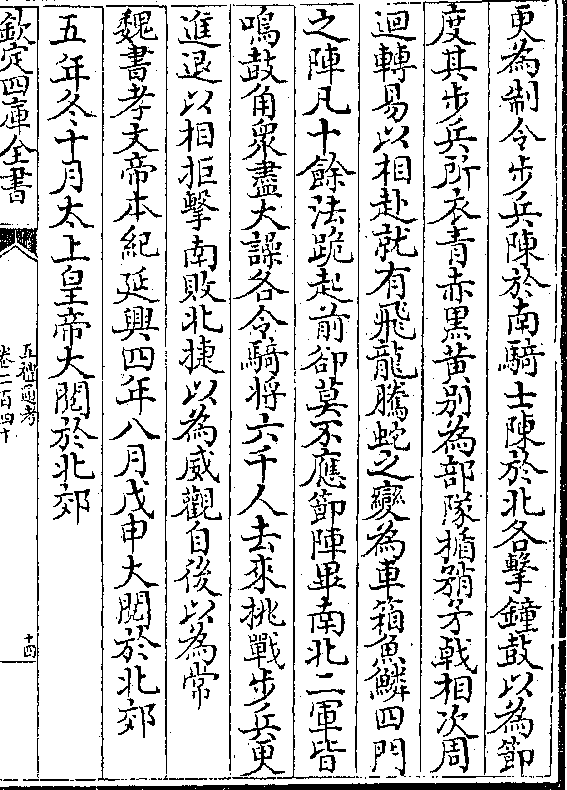 更為制令步兵陳於南騎士陳於北各擊鐘鼓以為節
度其步兵所衣青赤黑黄别為部隊楯矟矛戟相次周
迴轉易以相赴就有飛龍騰蛇之變為車箱魚鱗四門
之陣凡十餘法跪起前卻莫不應節陣畢南北二軍皆
鳴鼓角衆盡大譟各令騎将六千人去來挑戰步兵更
進退以相拒擊南敗北捷以為威觀自後以為常
魏書孝文帝本紀延興四年八月戊申大閱於北郊
五年冬十月太上皇帝大閱於北郊
欽定四庫全書
五禮通考
卷二百四十
十四